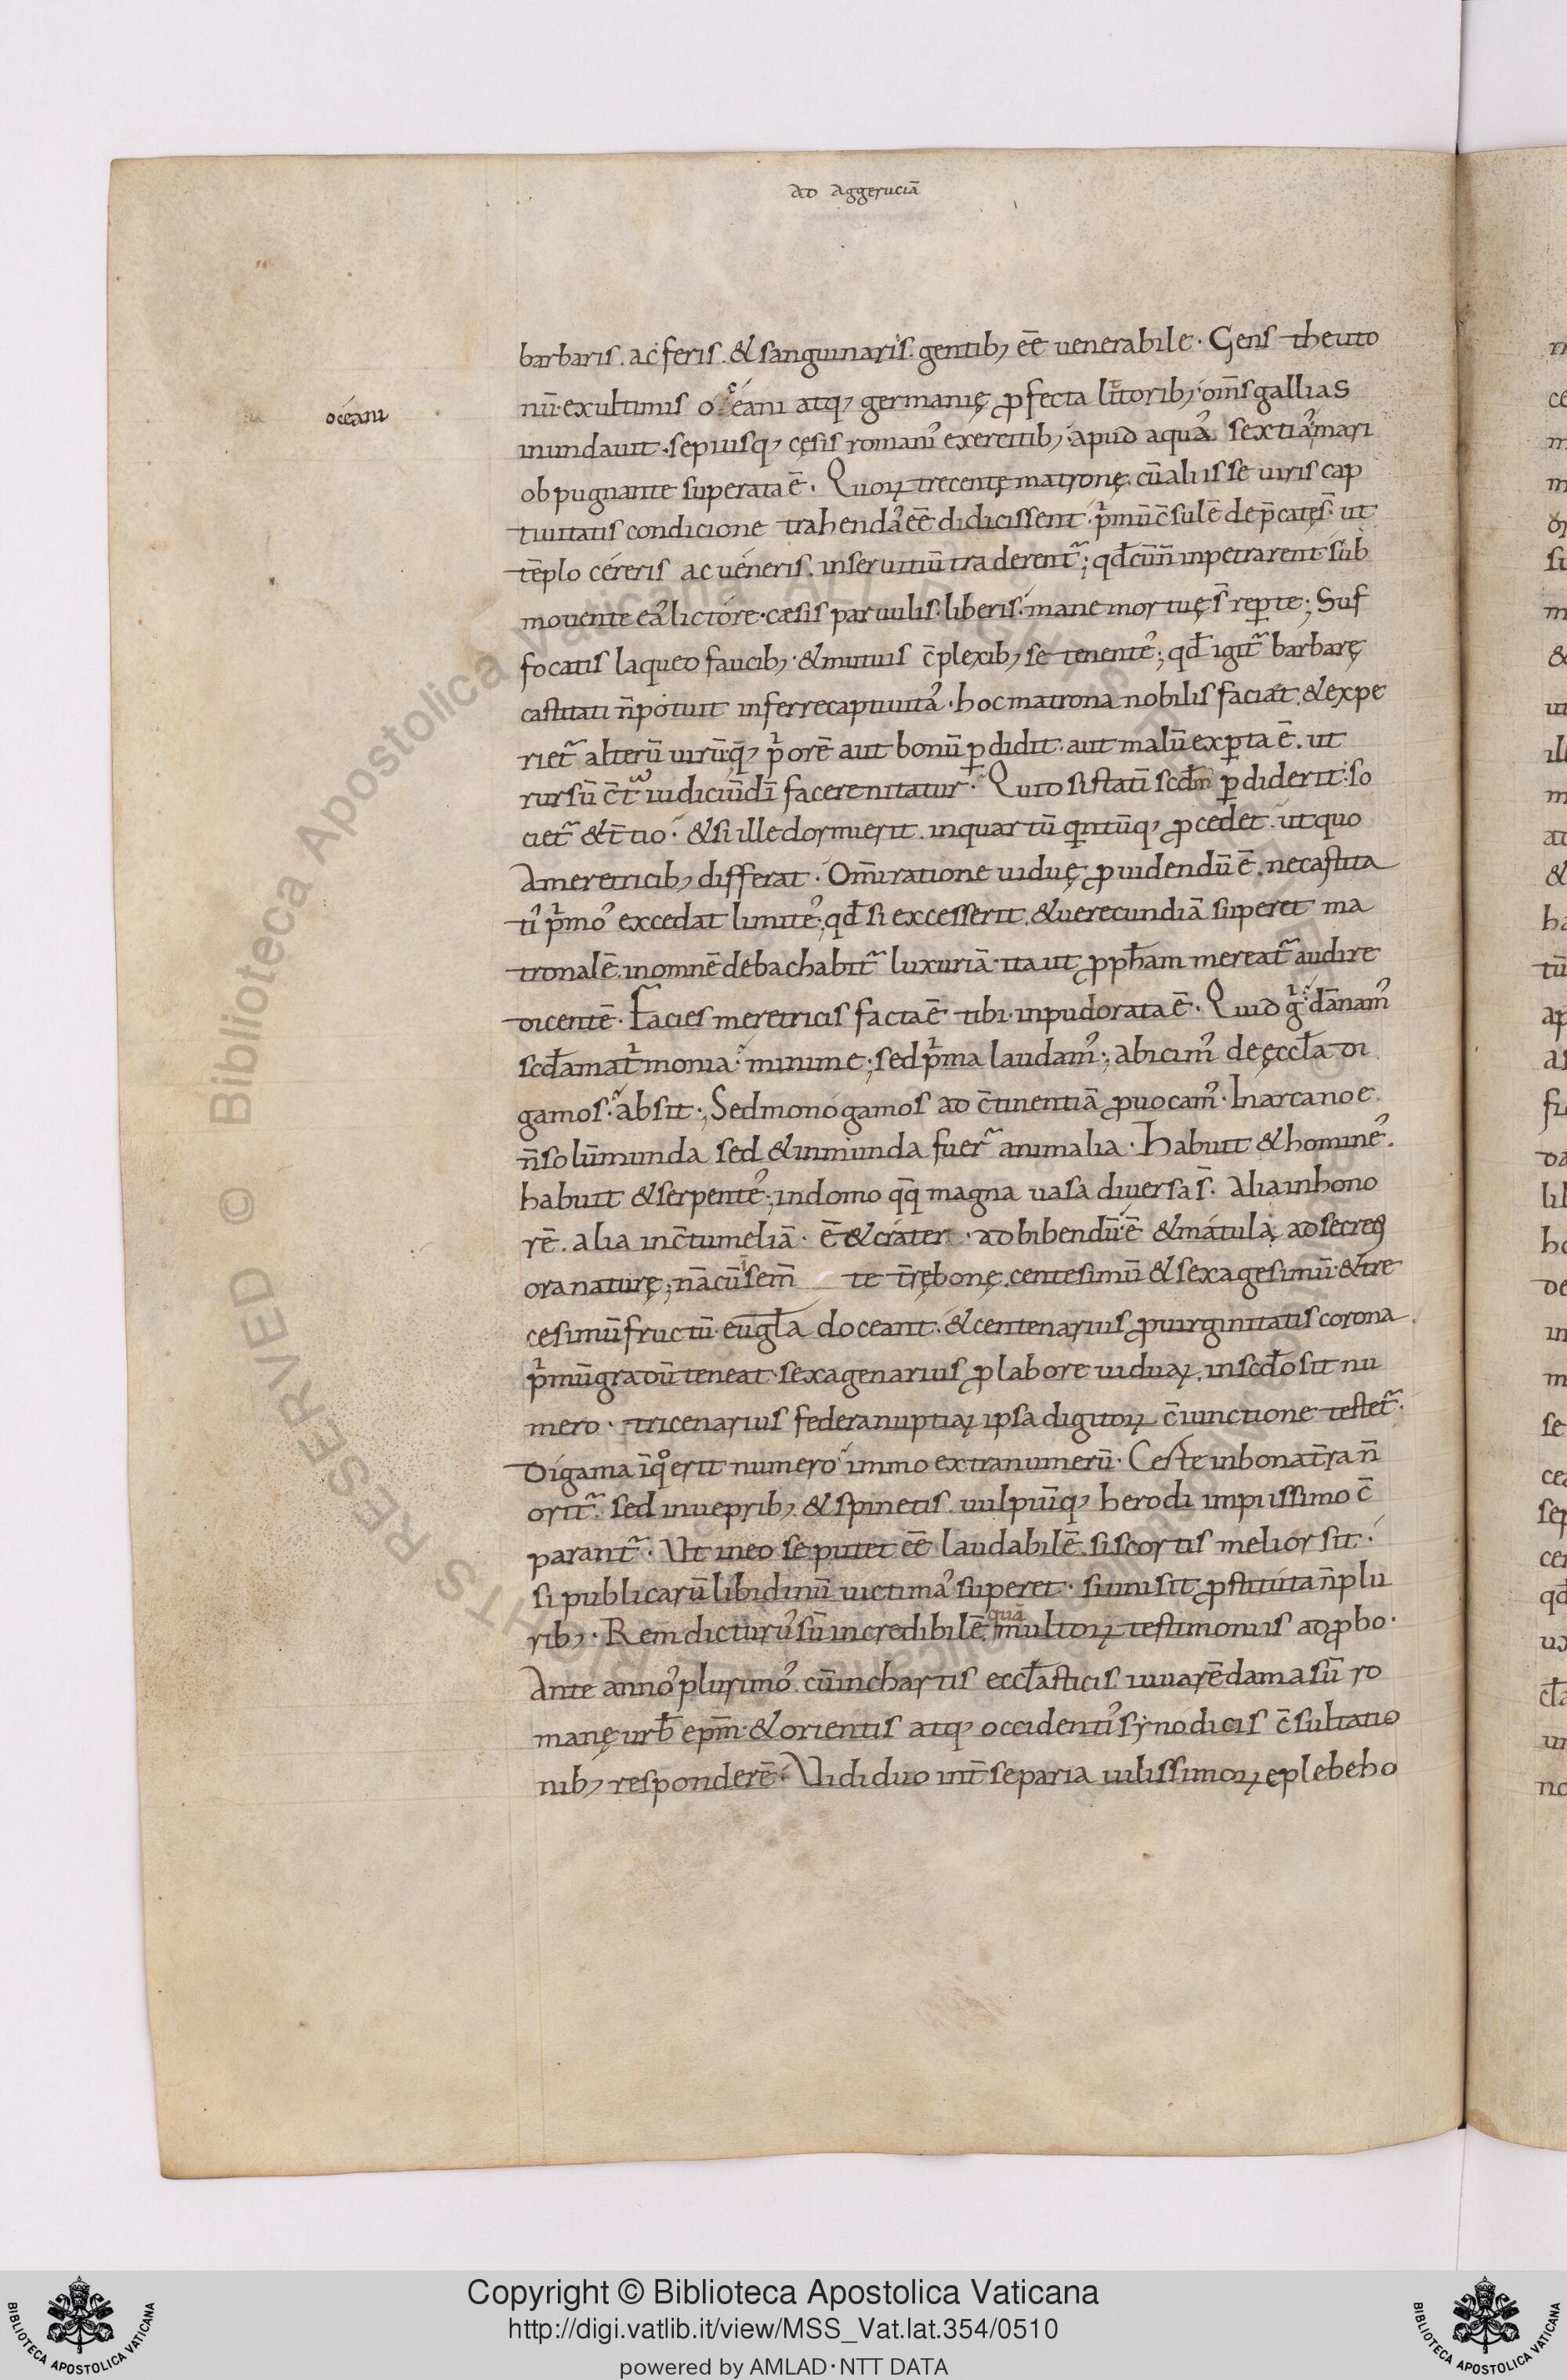 ad Aggeruciā
barbaris. ac feris. & sanguinaris. gentib; eē uenerabile. Gens theuto
nū. ex ultimis océani atq; germanię ꝓfecta littorib; om̄s gallias
océani
inundauit. sepiusq; cęsis roman᾽ exercitib; apud aquas sextias mari
ob pugnante superata ē. Quoꝝ trecentę matronę. cū aliis se uiris cap
tiuitatis condicione trahendas eē didicissent. pͥmū c̄sulē dep̄catęs̄. ut
tēplo céreris ac uéneris. inseruitiū traderent᷑; qd̄ cūn̄ inpetrarent sub
mouente eas lictóre. cæsis paruulis. liberis. mane mortuęs̄ reꝑte; Suf
focatis laqueo faucib;. & mutuis c̄plexib; se tenentes; qd̄ igit᷑ barbarę
castitati n̄ potuit inferre captiuitas. hoc matrona nobilis faciat. & expe
riet᷑ alterū uirū. q̄; pͥorē aut bonū ꝑdidit. aut malū exꝑta ē. ut
rursū c̄tra iudiciū dī facere nitatur. Quid si statī scd̄m ꝑdiderit. so
ciet᷑ & t̄tio. & si ille dormierit. inquartū qͥntūq; ꝓcedet. ut quo
A meretricib; differat. Om̄i ratione uiduę ꝓuidendū ē. ne castita
tis pͥmos excedat limites; qd̄ si excesserit. & uerecundiā superet ma
tronalē. in omnē debachabit᷑ luxuriā. ita ut ꝓph̄am mereat᷑ audire
dicentē. Facies meretricis facta ē tibi. inpudorata ē. Quid gͥ. dānam᾽
scd̄a mat̄monia. minime; sed pͥma laudam᾽; abicim᾽ de ęccl̄a di
gamos. absit; Sed monógamos ad c̄tinentiā ꝓuocam᾽. In arca noe
n̄ solū munda sed & inmunda fuer᷑ animalia. Habuit & homines.
habuit & serpentes; in domo qq̄ magna uasa diuersa s̄. alia in hono
rē. alia in c̄tumeliā. ē & cráter. ad bibendū. ē & mátula. ad secreti
ora naturę; nā cū sem̄te t̄rę bonę. centesimū & sexagesimū. & tre
cesimū fructū. eugl̄a doceant. & centenarius ꝓ uirginitatis corona.
pͥmū gradū teneat. sexagenarius ꝓ labore uiduaꝝ. in scd̄o sit nu
mero. tricenarius federa nuptiaꝝ ipsa digitoꝝ c̄iunctione testet᷑.
Digama īqͦ erit numero immo extra numerū. Certe in bona t̄ra n̄
orit᷑. sed in ueprib; & spinetis. uulpiūq; herodi impiissimo c̄
parant᷑. Ut in eo se putet eē laudabilē. si scortis melior sit.
si publicarū libidinū uictimas superet. si uni sit ꝓstituta n̄ plu
rib;. Rem̄ dicturus sū incredibilē. quā multoꝝ testimoniis adꝓbo.
Ante annos plurimos. cū in chartis eccl̄asticis. iuuarē damasū ro
manę urb̄ epm̄. & orientis atq; occidentis synodicis c̄sultatio
nib; responderē. Uidi duo int̄ se paria uilissimoꝝ e plebe ho
Copyright © Biblioteca Apostolica Vaticana
http://digi.vatlib.it/view/MSS_Vat.lat.354/0510
powered by AMLAD·NTT DATA